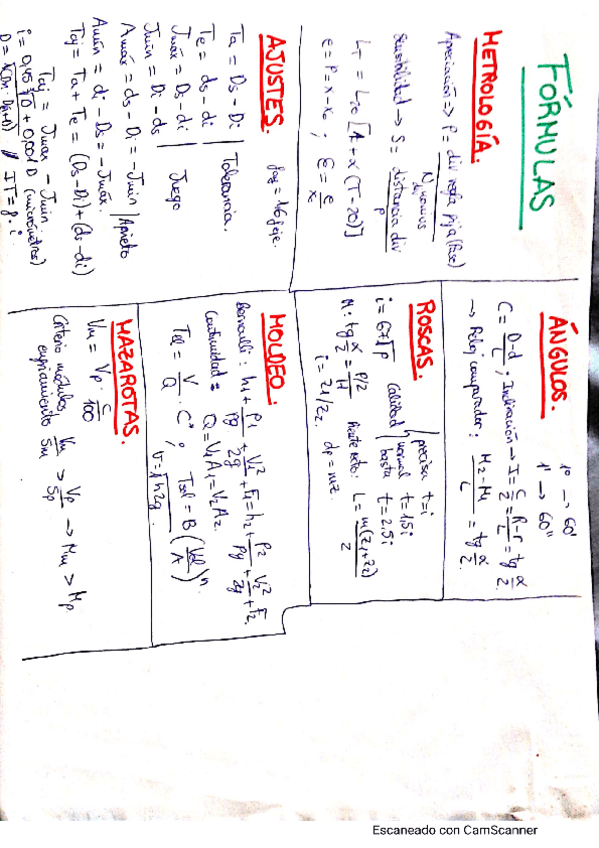 FÓRMULAS
METROLOGÍA.
Apreciación => P = div regla fija (Pisc) / N divisiones
Sensibilidad → S = distancia div / P
LT = L20 [1 + α (T - 20)]
e = P = x - x0 ; E = e / x0
AJUSTES.
Ta = Ds - Di | Tolerancia.
Te = ds - di
Jmáx = Ds - di | Juego
Jmín = Di - ds
Amáx = ds - Di = - Jmin | Aprieto
Amín = di - Ds = - Jmáx.
Taj = Ta + Te = (Ds - Di) + (ds - di)
Taj = Jmax - Jmin.
i = 0,45 ∛D + 0,001 D (micrómetros)
IT = g · i
ÁNGULOS.
1º → 60'
1' → 60''
C = D - d / L ; Inclinación → I = C/2 = R - r / L = tg α/2
→ Reloj comparador: M2 - M1 / L = tg α/2.
ROSCAS.
i = 67√P Calidad precisa t = i
normal t = 1,5 i
basta t = 2,5 i
M: tg α/2 = P/2 / H
L = m(z1 + z2) / 2
i = z1/z2. dp = mz.
MOLDEO.
Bernoulli: h1 + P1/ρg + V1²/2g + F1 = h2 + P2/ρg + V2²/2g + F2.
Continuidad = Q = V1A1 = V2A2.
V/Q · C ;
Tsol = B (Vol / A)ⁿ
v = √h2g.
MAZAROTAS.
Vm = Vp · C/100
Criterio módulos enfriamiento Vm/Sm > Vp/Sp → Mm > Mp
Escaneado con CamScanner